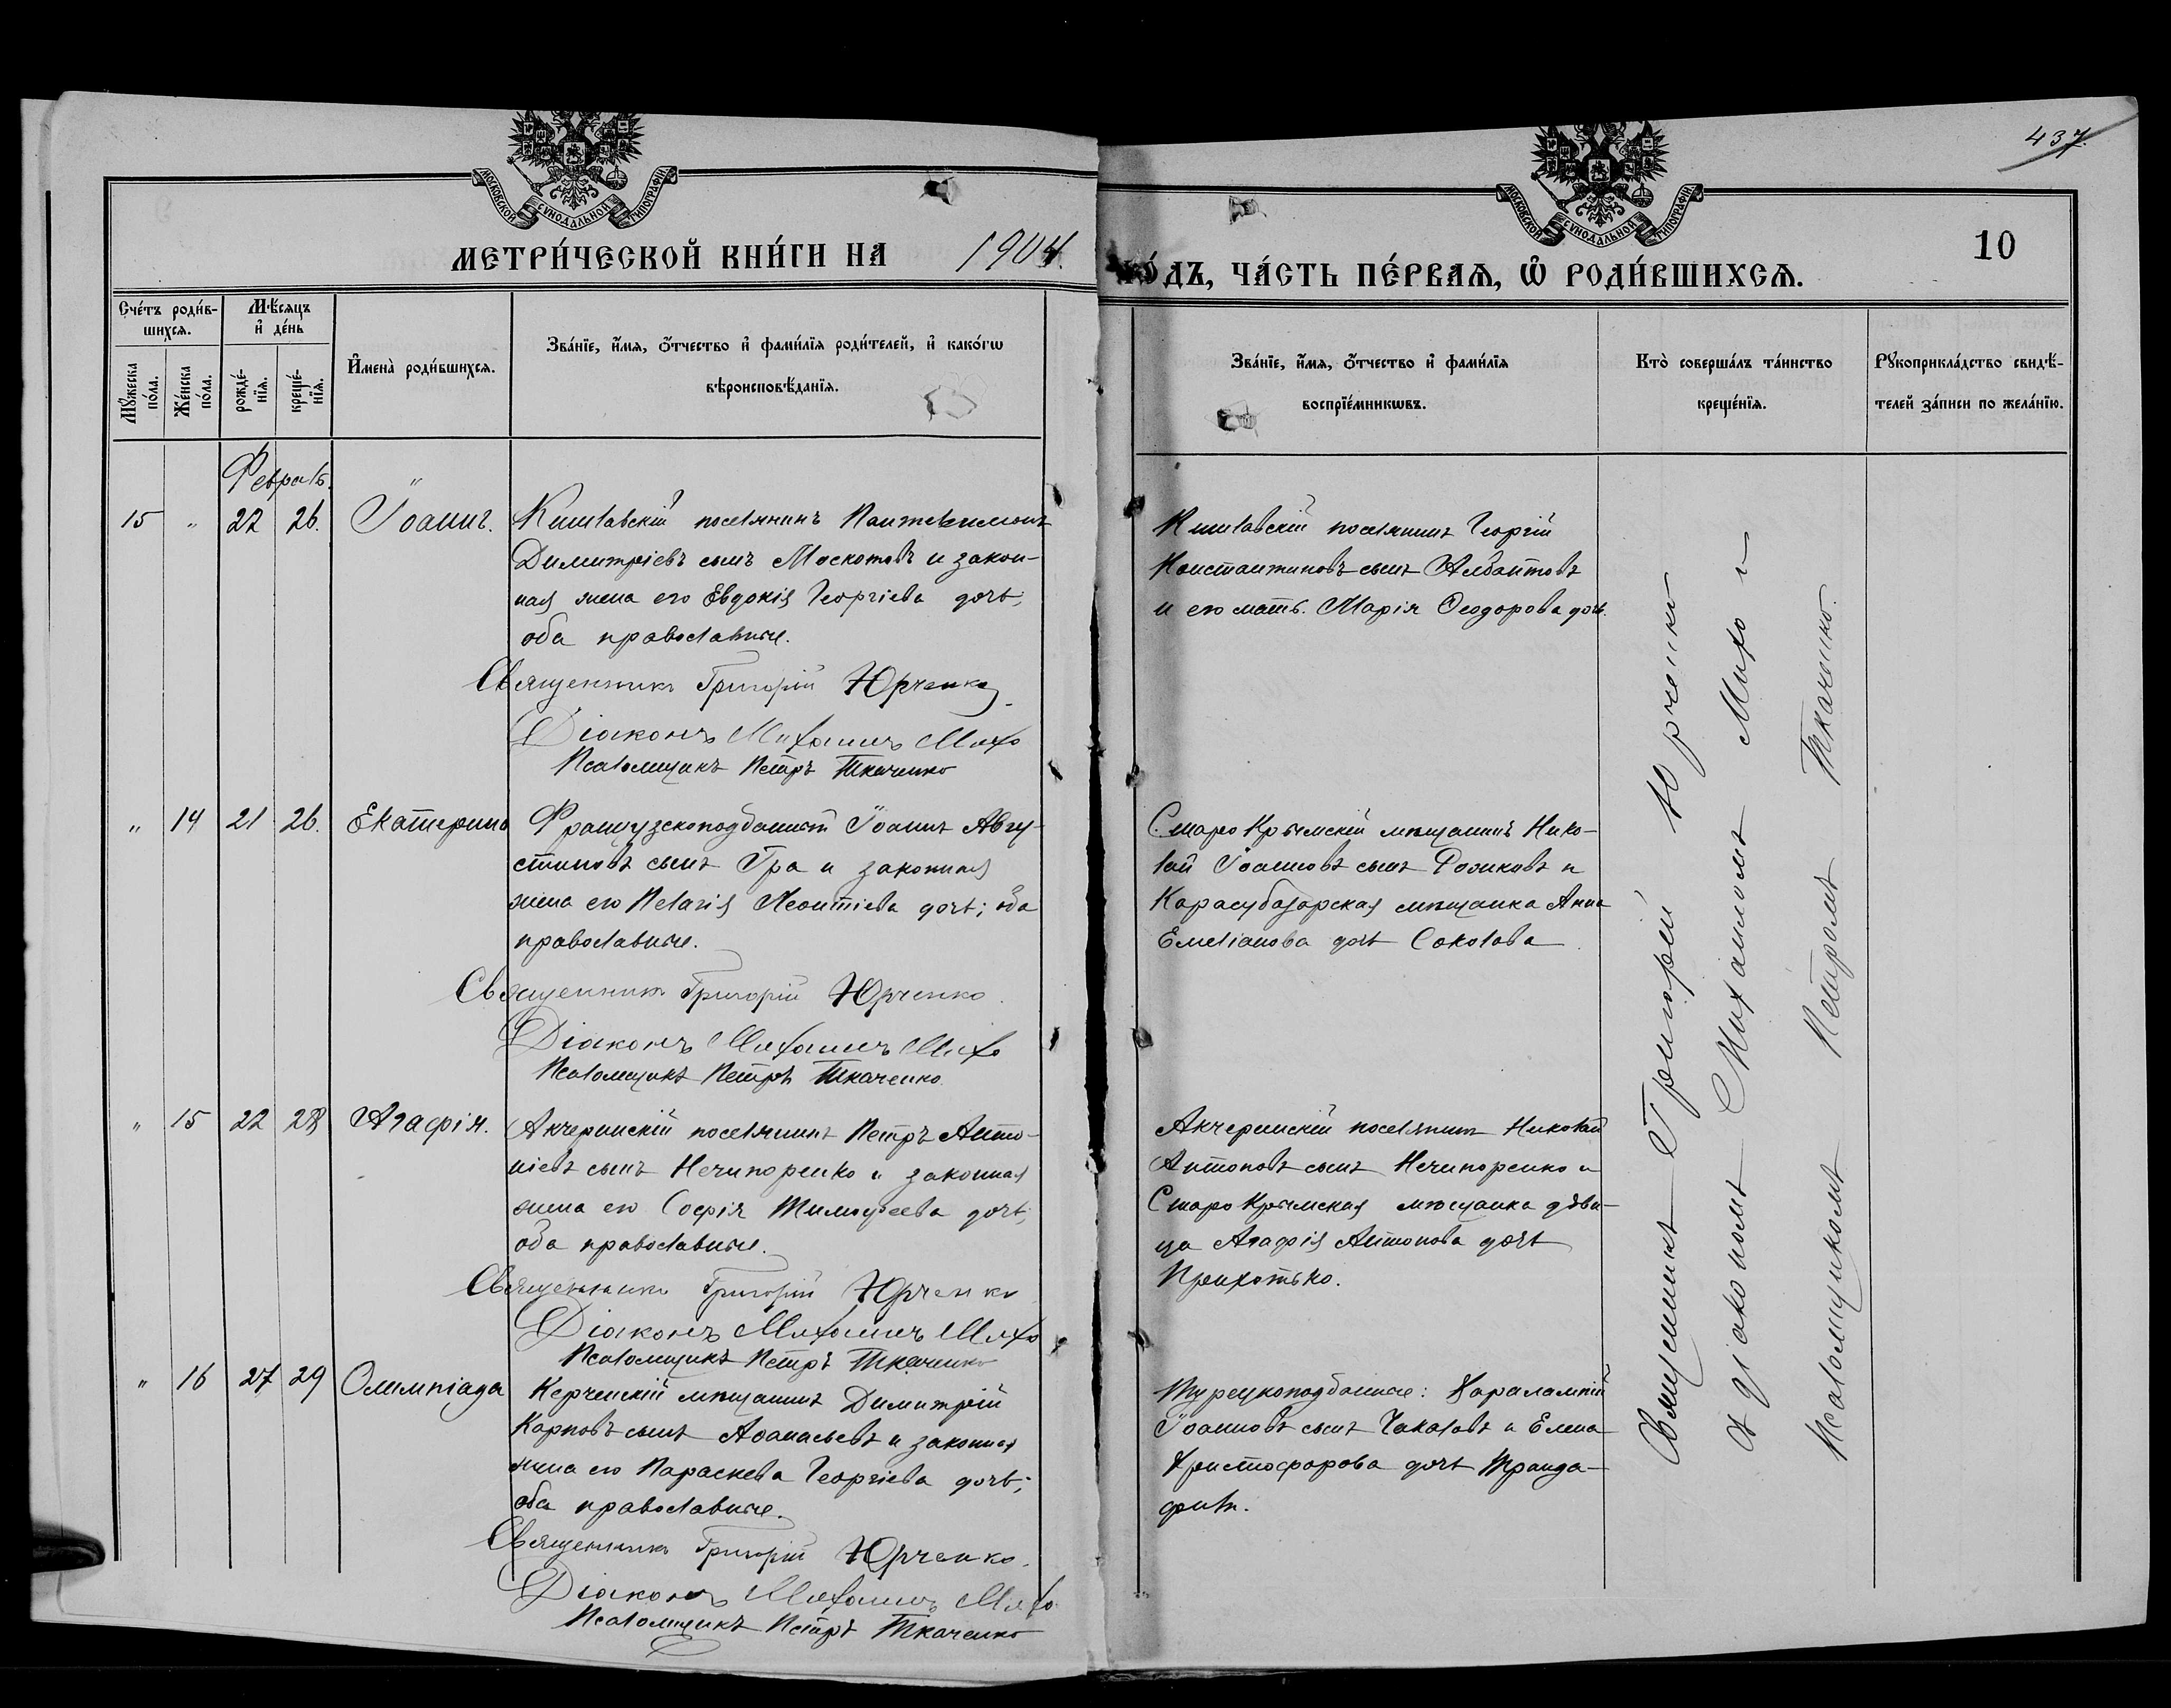 437.
МОСКОВСКОЙ СѴНОДАЛЬНОЙ ТИПОГРАФІИ
МОСКОВСКОЙ СѴНОДАЛЬНОЙ ТИПОГРАФІИ
МЕТРИ́ЧЕСКОЙ КНИ́ГИ НА 1904.
ГО́ДЪ, ЧА́СТЬ ПЕ́РВАѦ, Ѿ РОДИ́ВШИХСѦ.
10
Сче́тъ роди́в-
шихсѧ.
Мѣ́сѧцъ
и҆ де́нь
Мꙋ́жеска по́ла.
Же́нска по́ла.
рожде́-
нїѧ.
креще́-
нїѧ.
И҆мена̀ роди́вшихсѧ.
Зва́нїе, и҆́мѧ, ѻ҆́тчество и҆ фами́лїѧ роди́телей, и҆ како́гѡ
вѣроисповѣ́данїѧ.
Зва́нїе, и҆́мѧ, ѻ҆́тчество и҆ фами́лїѧ
воспрїе́мникѡвъ.
Кто̀ соверша́лъ та́инство
креще́нїѧ.
Рꙋкоприкла́дство свидѣ́-
телей за́писи по жела́нїю.
Февраль.
15 " 22 26. Іоаннъ.
Кишлавскій поселянинъ Пантелеимонъ
Димитріевъ сынъ Москотовъ и закон-
ная жена его Евдокія Георгіева дочь;
оба православные.
Священникъ Григорій Юрченко
Діаконъ Михаилъ Михо
Псаломщикъ Петръ Ткаченко
Кишлавскій поселянинъ Георгій
Константиновъ сынъ Албантовъ
и его мать Марія Ѳеодорова дочь.
" 14 21 26. Екатерина
Французскоподданный Іоаннъ Авгу-
стиновъ сынъ Гра и законная
жена его Пелагія Леонтіева дочь; оба
православные.
Священникъ Григорій Юрченко.
Діаконъ Михаилъ Михо
Псаломщикъ Петръ Ткаченко
Старо Крымскій мѣщанинъ Нико-
лай Іоанновъ сынъ и
Карасубазарская мѣщанка Анна
Емеліанова дочь Соколова
" 15 22 28 Агафія.
Акчеринскій поселянинъ Петръ Анто-
ніевъ сынъ Нечипоренко и законная
жена его Софія Тимоѳеева дочь;
оба православные.
Священникъ Григорій Юрченко
Діаконъ Михаилъ Михо
Псаломщикъ Петръ Ткаченко
Акчеринскій поселянинъ Николай
Антоновъ сынъ Нечипоренко и
Старо Крымская мѣщанка дѣви-
ца Агафія Антонова дочь
Прихотько.
" 16 27 29 Олимпіада
Керченскій мѣщанинъ Димитрій
Карповъ сынъ Аѳанасьевъ и законная
жена его Параскева Георгіева дочь;
оба православные.
Священникъ Григорій Юрченко.
Діаконъ Михаилъ Михо
Псаломщикъ Петръ Ткаченко
Турецкоподданные: Харалампій
Іоанновъ сынъ Чакаловъ и Елена
Христофорова дочь Транда-
фило.
Священникъ Григорій Юрченко
съ діакономъ Михаиломъ Михо и
псаломщикомъ Петромъ Ткаченко.